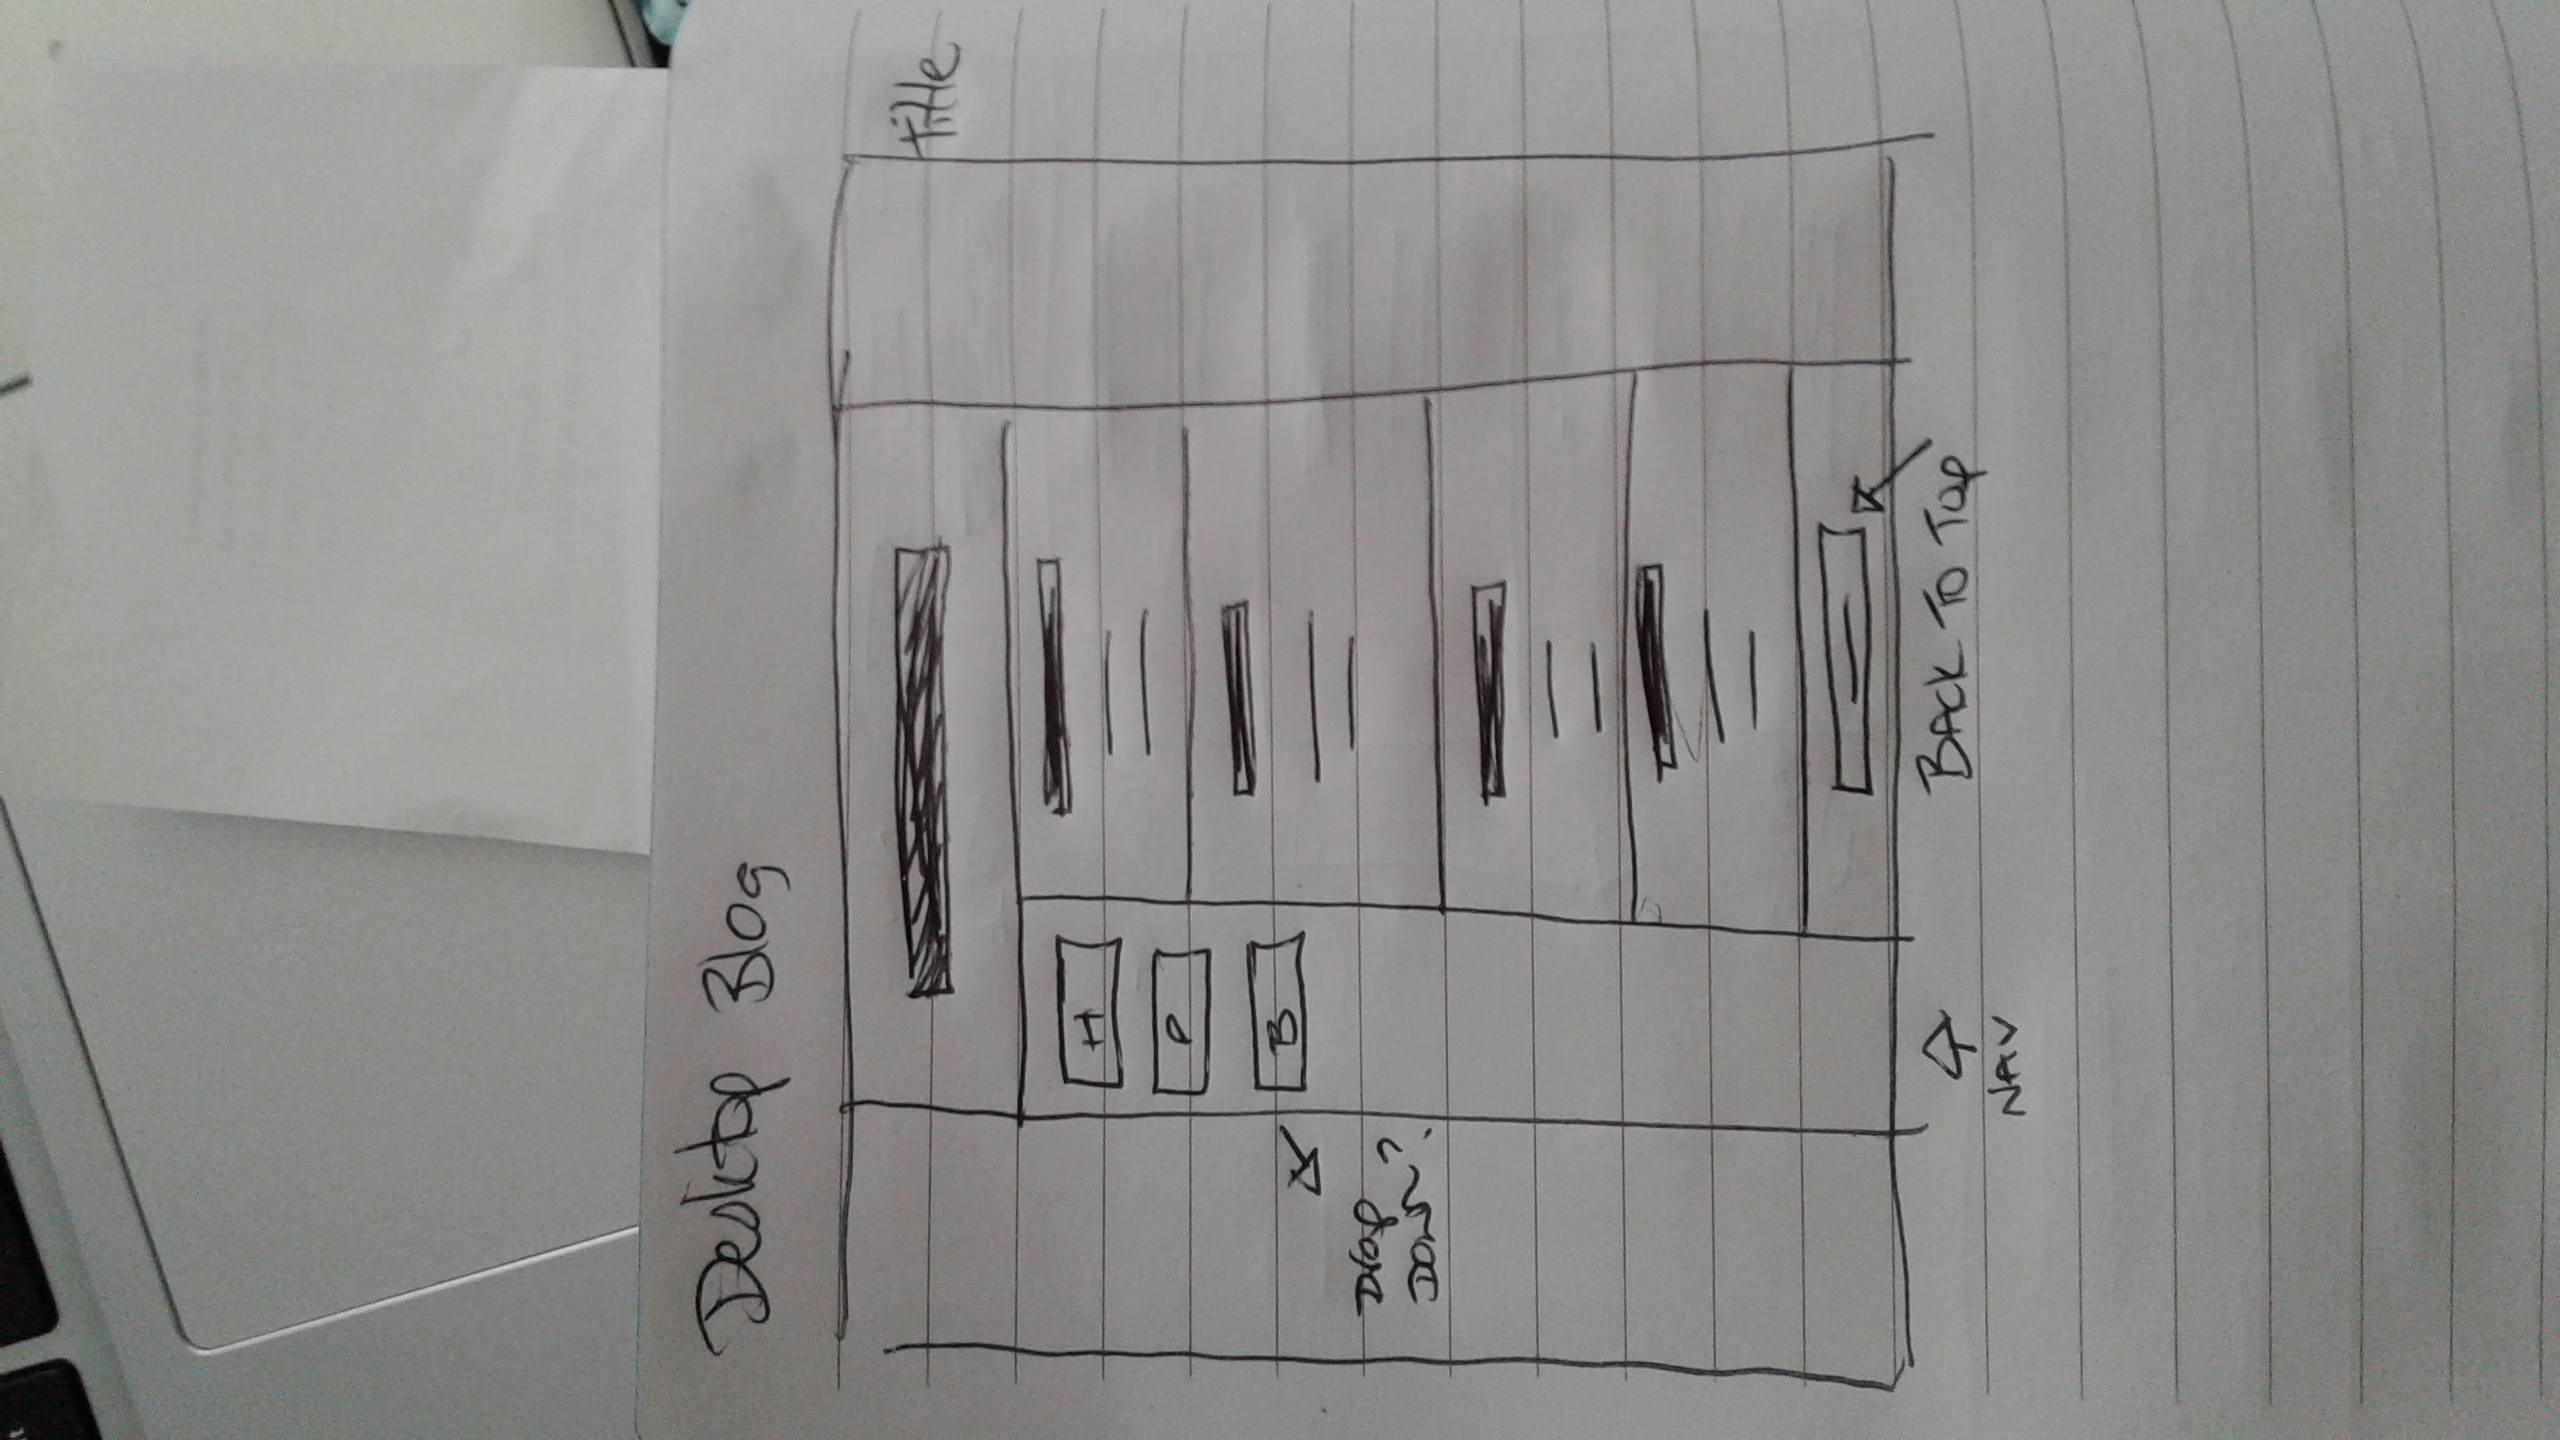 Desktop Blog
Title
H
P
B
Drop
Down?
BACK TO TOP
NAV